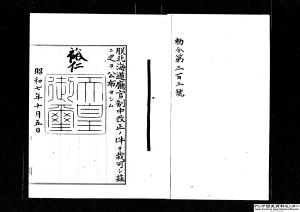 勅令第三百三號
朕北海道廳官制中改正ノ件ヲ裁可シ茲
ニ之ヲ公布セシム
裕仁
天皇
御璽
昭和七年十月五日
アジア歴史資料センター